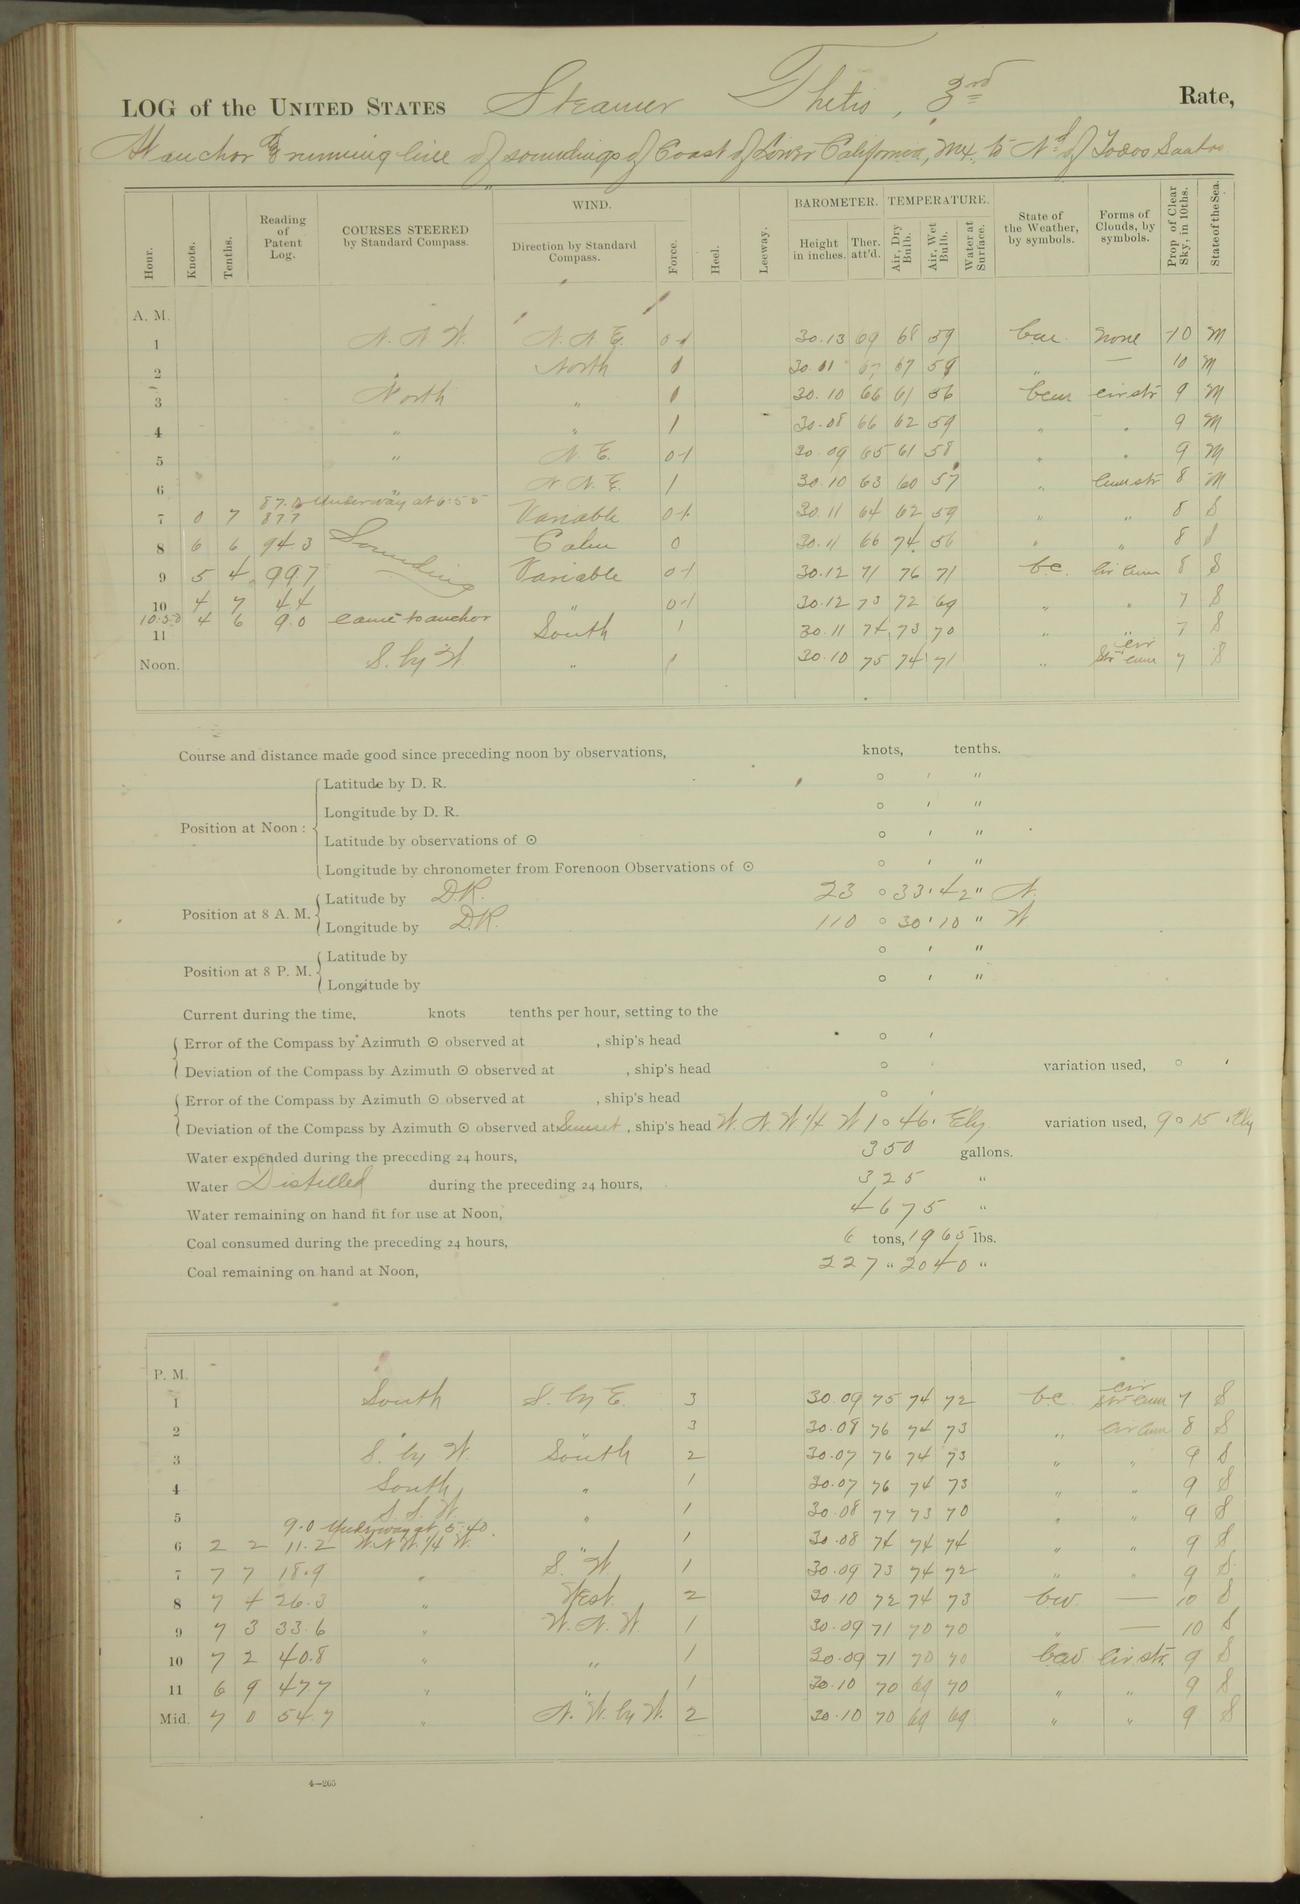 LOG of the UNITED STATES Steamer Thetis, 3rd Rate,
At anchor & running line of soundings of Coast of Lower California, Mex. to Nd of Todos Santos
Hour. Knots. Tenths. Reading of Patent Log. COURSES STEERED by Standard Compass. WIND. Direction by Standard Compass. Force. Heel. Leeway. BAROMETER. Height in inches. Ther. att'd. TEMPERATURE. Air, Dry Bulb. Air, Wet Bulb. Water at Surface. State of the Weather, by symbols. Forms of Clouds, by symbols. Prop. of Clear Sky, in 10ths. State of the Sea.
A. M.
1 N. N. W. N. N. E. 0-1 30.13 69 68 59 none 10 M
2 " North 1 30.11 67 67 59 " — 10 M
3 North " 1 30.10 66 61 56 bcm cir str 9 M
4 " " 1 30.08 66 62 59 " " 9 M
5 " N. E. 0-1 30.09 65 61 58 " " 9 M
6 " N. N. E. 1 30.10 63 60 57 " cum str 8 M
87.0 Underway at 6:55
7 0 7 87.7 Variable 0-1 30.11 64 62 59 " " 8 S
8 6 6 94.3 Sounding Calm 0 30.11 66 74 56 " " 8 S
9 5 4 99.7 Variable 0-1 30.12 71 76 71 bc. cir cum 8 S
10 4 7 4.4 " 0-1 30.12 73 72 69 " " 7 S
10:50 4 6 9.0 came to anchor
11 South 1 30.11 74 73 70 " " 7 S
Noon. S. by W. " 1 30.10 75 74 71 " cir str cum 7 S
Course and distance made good since preceding noon by observations, knots, tenths.
Position at Noon: Latitude by D. R. ° ' "
Longitude by D. R. ° ' "
Latitude by observations of ☉ ° ' "
Longitude by chronometer from Forenoon Observations of ☉ ° ' "
Position at 8 A. M. Latitude by D.R. 23 ° 33 ' 42 " N.
Longitude by D.R. 110 ° 30 ' 10 " W
Position at 8 P. M. Latitude by ° ' "
Longitude by ° ' "
Current during the time, knots tenths per hour, setting to the
Error of the Compass by Azimuth ☉ observed at , ship's head ° '
Deviation of the Compass by Azimuth ☉ observed at , ship's head ° ' variation used, ° '
Error of the Compass by Azimuth ☉ observed at , ship's head ° '
Deviation of the Compass by Azimuth ☉ observed at Sunset , ship's head W. N. W ¼ W 1 ° 46 ' Ely variation used, 9 ° 15 ' Ely
Water expended during the preceding 24 hours, 350 gallons.
Water Distilled during the preceding 24 hours, 325 "
Water remaining on hand fit for use at Noon, 4675 "
Coal consumed during the preceding 24 hours, 6 tons, 1965 lbs.
Coal remaining on hand at Noon, 227 " 2040 "
P. M.
1 South S. by E. 3 30.09 75 74 72 bc. cir str cum 7 S
2 " " 3 30.08 76 74 73 " cir cum 8 S
3 S. by W. South 2 30.07 76 74 73 " " 9 S
4 South " 1 30.07 76 74 73 " " 9 S
5 S. S. W. " 1 30.08 77 73 70 " " 9 S
9.0 Underway at 5:40.
6 2 2 11.2 W. N. W. ¼ W. " 1 30.08 74 74 74 " " 9 S
7 7 7 18.9 " S. W. 1 30.09 73 74 72 " " 9 S
8 7 4 26.3 " West. 2 30.10 72 74 73 — 10 S
9 7 3 33.6 " W. N. W 1 30.09 71 70 70 " — 10 S
10 7 2 40.8 " " 1 30.09 71 70 70 cir str. 9 S
11 6 9 47.7 " " 1 30.10 70 69 70 " " 9 S
Mid. 7 0 54.7 " N. W. by W. 2 30.10 70 69 69 " " 9 S
4—265